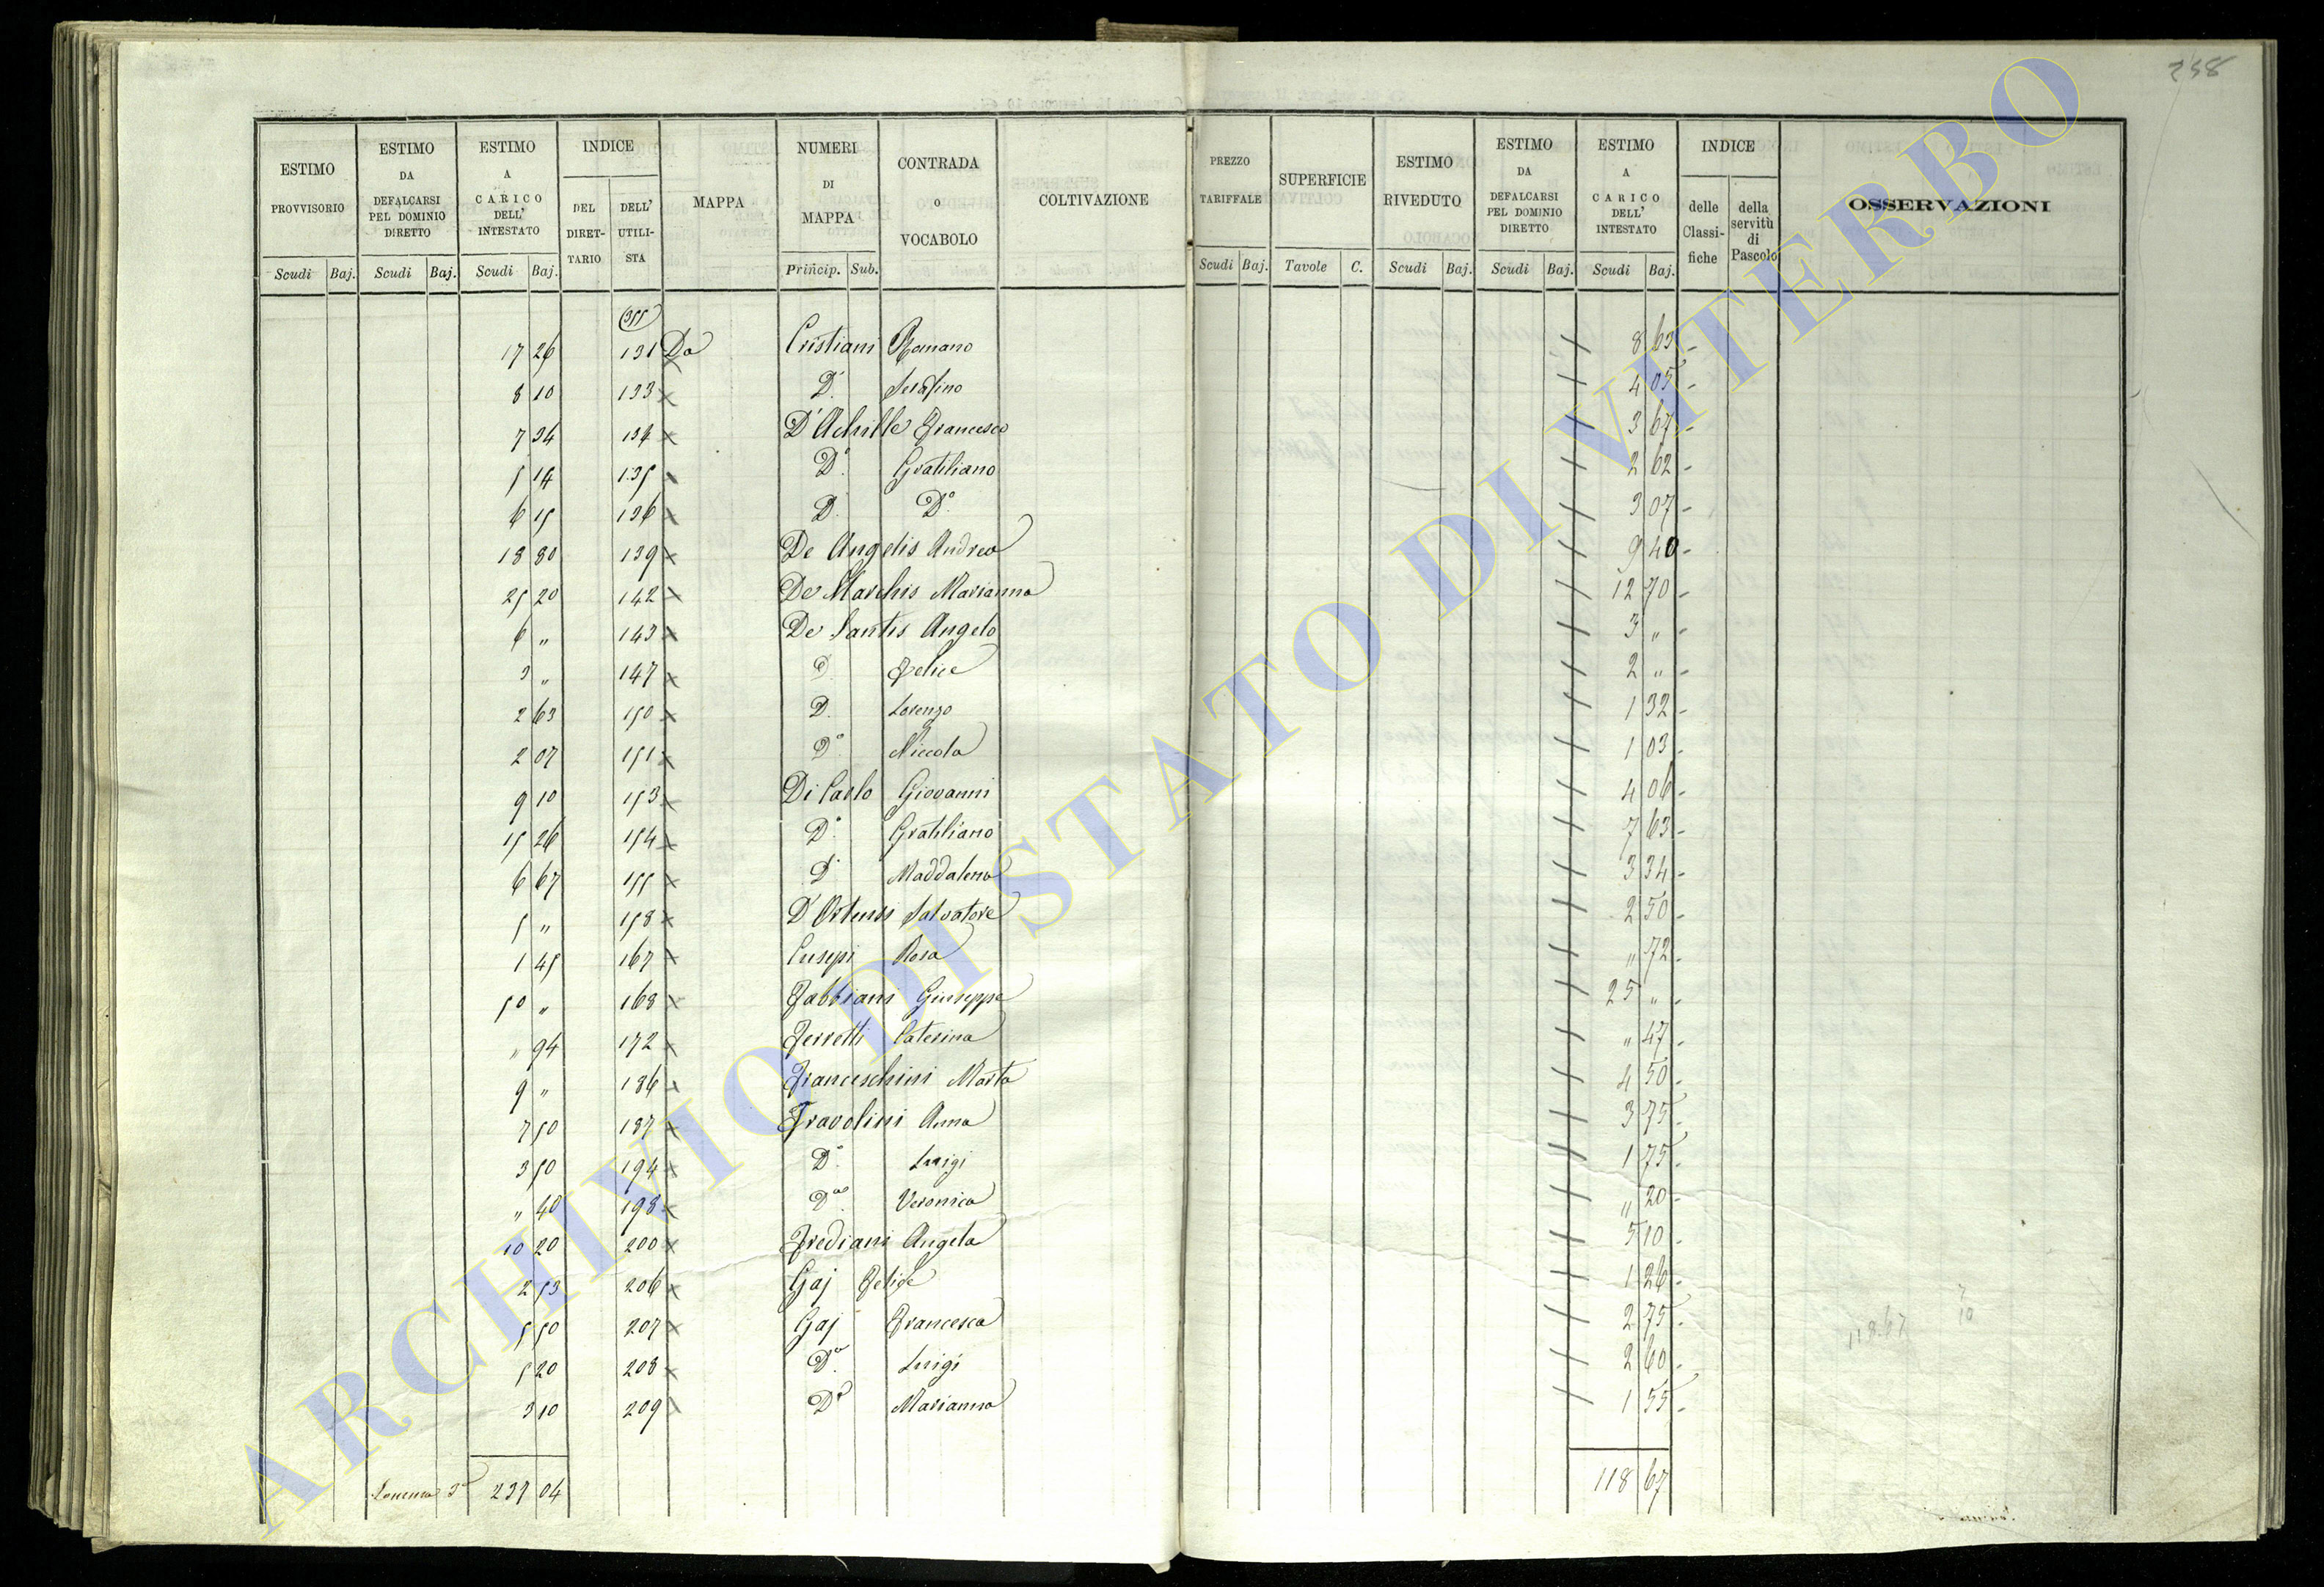 258
ESTIMO PROVVISORIO | ESTIMO DA DEFALCARSI PEL DOMINIO DIRETTO | ESTIMO A CARICO DELL' INTESTATO | INDICE DEL DIRET-TARIO | DELL' UTILI-STA | MAPPA | NUMERI DI MAPPA | CONTRADA O VOCABOLO | COLTIVAZIONE | PREZZO TARIFFALE | SUPERFICIE | ESTIMO RIVEDUTO | ESTIMO DA DEFALCARSI PEL DOMINIO DIRETTO | ESTIMO A CARICO DELL' INTESTATO | INDICE delle Classi-fiche | della servitù di Pascolo | OSSERVAZIONI
Scudi Baj. | Scudi Baj. | Scudi Baj. | Princip. Sub. | Scudi Baj. | Tavole C. | Scudi Baj. | Scudi Baj. | Scudi Baj.
17 26 131 Da Cristiani Romano 8 63 -
8 10 133 x D.° Serafino 4 05 -
7 34 134 x D'Achille Francesco 3 67 -
5 14 135 x D.° Gratiliano 2 62 -
6 15 136 x D. D.° 3 07 -
18 80 139 x De Angelis Andrea 9 40 -
25 20 142 x De Marchis Marianna 12 70 -
6 „ 143 x De Santis Angelo 3 „ -
3 „ 147 x D. Felice 2 „ -
2 63 150 x D. Lorenzo 1 32 -
2 07 151 x D.° Niccola 1 03 -
9 10 153 x Di Carlo Giovanni 4 06 -
15 26 154 x D.° Gratiliano 7 63 -
6 67 155 x D.° Maddalena 3 34 -
5 „ 158 x D'Ortensi Salvatore 2 50 -
1 45 167 x Eusepi Rosa „ 72 -
50 „ 168 x Fabbiani Giuseppe 25 „ -
„ 94 172 x Ferretti Caterina „ 47 -
9 „ 186 x Franceschini Marta 4 50 -
7 50 187 x Fravolini Anna 3 75 -
3 50 194 x D.° Luigi 1 75 -
„ 40 198 x D. Veronica „ 20 -
10 20 200 x Frediani Angela 5 10 -
2 53 206 x Gaj Felice 1 26 -
5 50 207 x Gaj Francesca 2 75 -
5 20 208 x D.° Luigi 2 60 -
3 10 209 x D.ª Marianna 1 55 -
118.67
237 04 118 67
ARCHIVIO DI STATO DI VITERBO